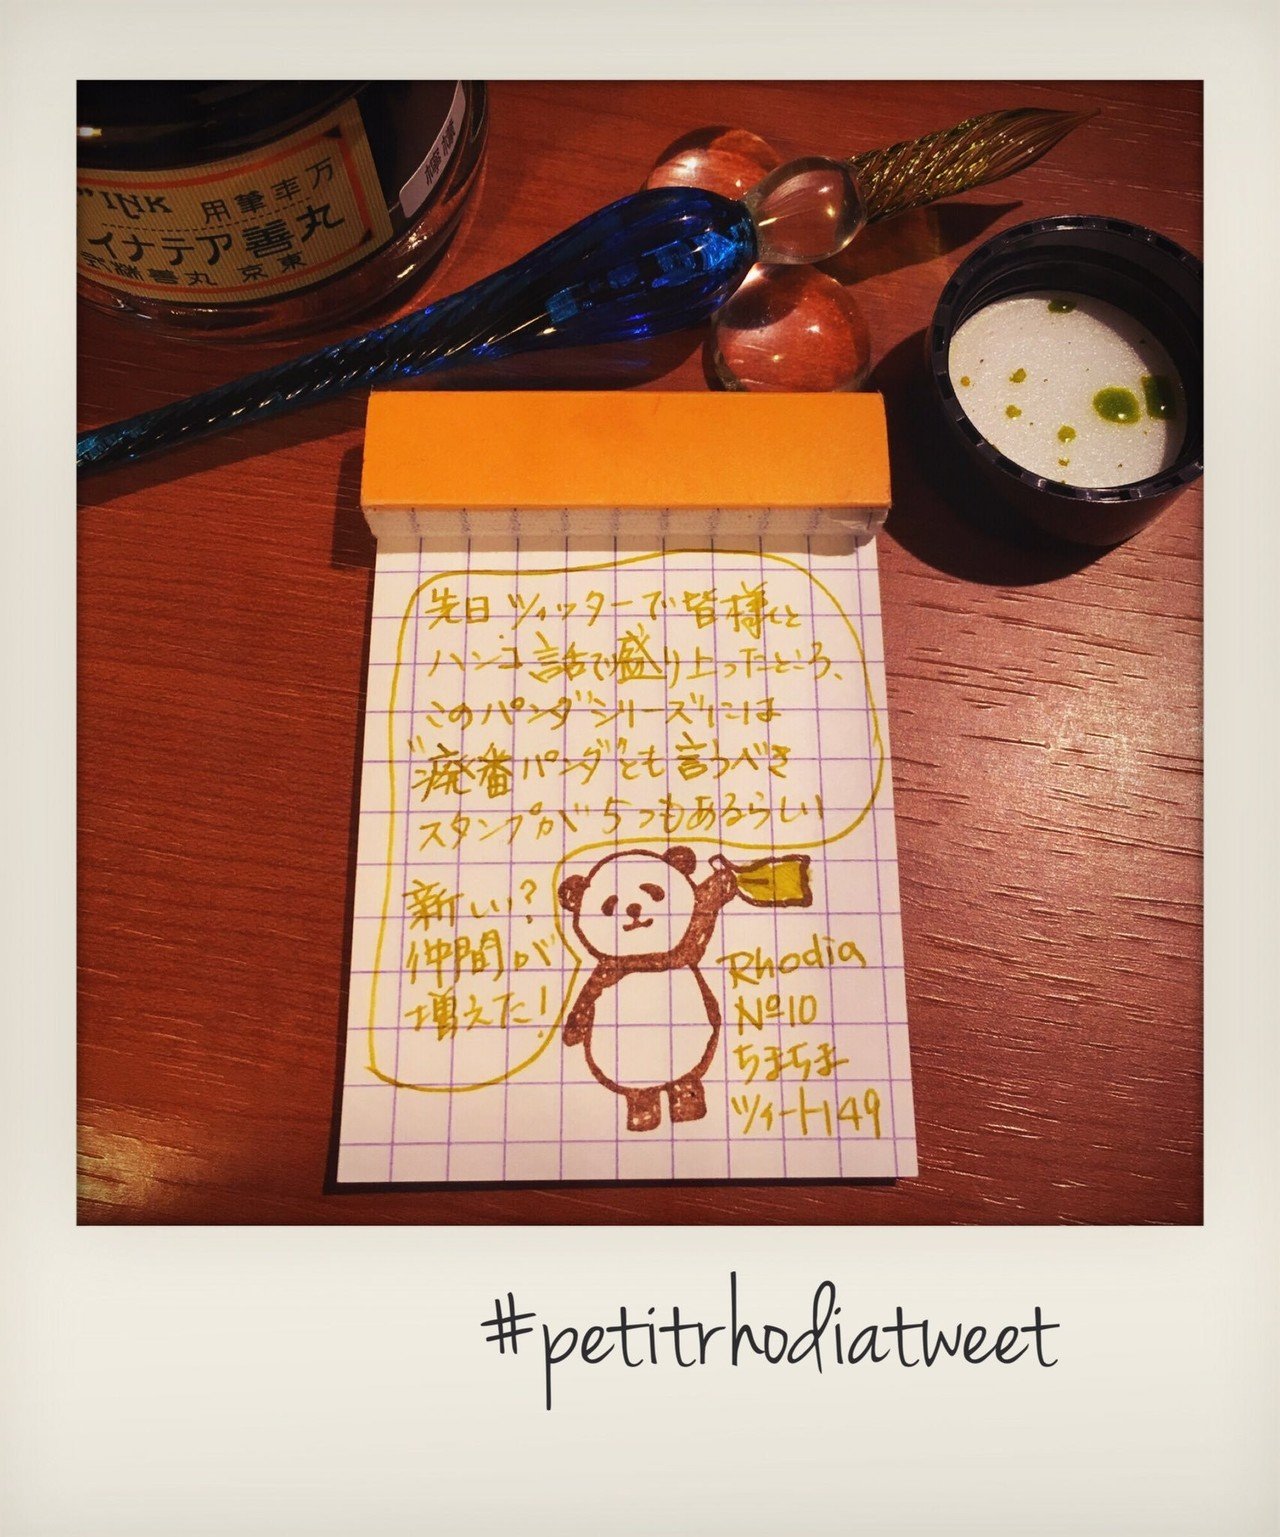 INK
万年筆用
丸善アテナイ
東京 丸善株式
檸檬
先日ツィッターで皆様と
ハンコ話で盛り上ったところ、
このパンダシリーズには
"廃番パンダ"とも言うべき
スタンプが5つもあるらしい
新しい?
仲間が
増えた!
Rhodia
Nº10
ちまちま
ツィート149
#petitrhodiatweet